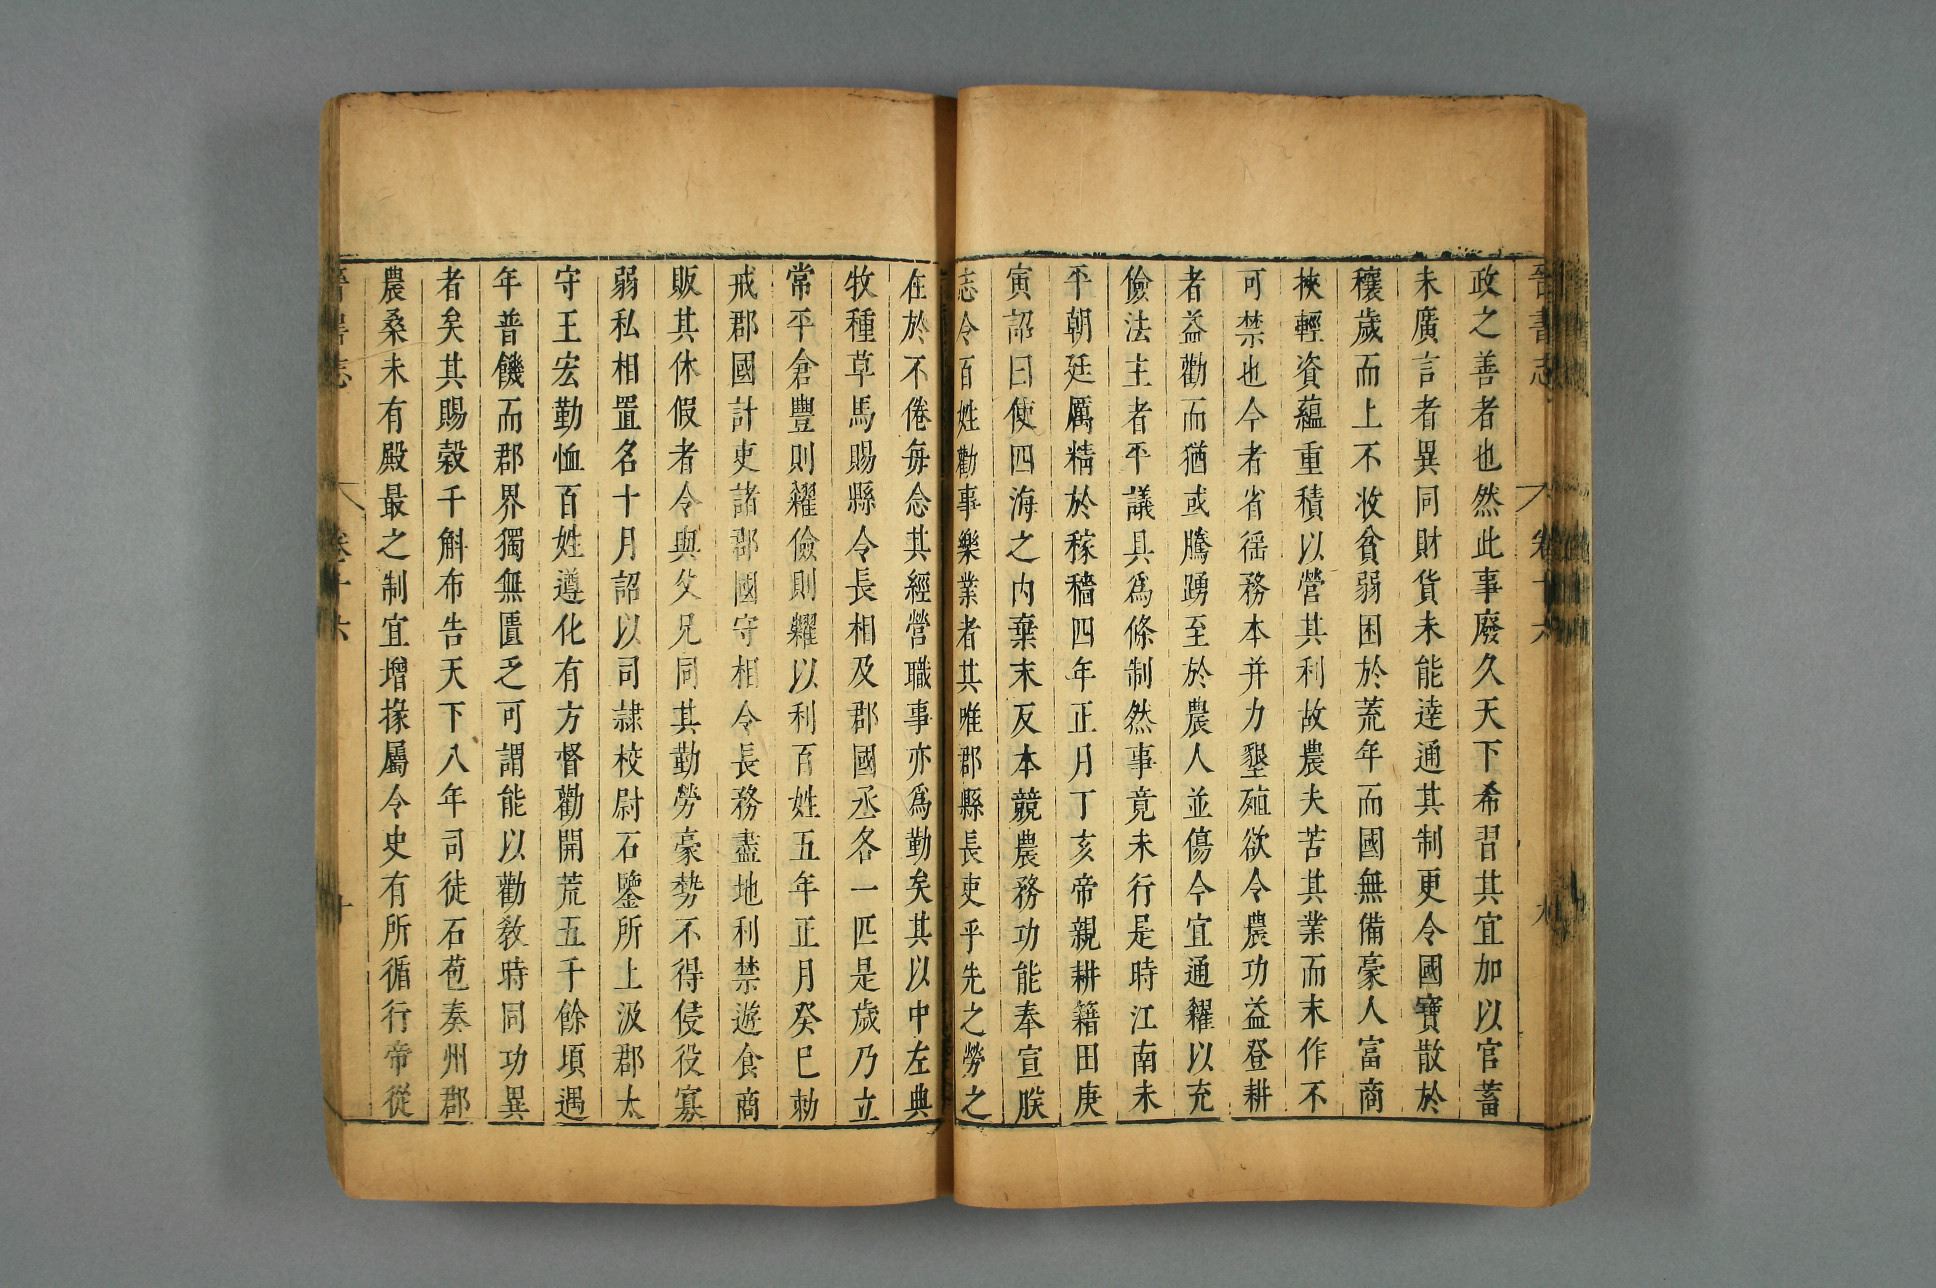 晉書志 卷十六 九
政之善者也然此事廢久天下希習其宜加以官蓄
未廣言者異同財貨未能達通其制更令國寶散於
穰歲而上不收貧弱困於荒年而國無備豪人富商
挾輕資蘊重積以營其利故農夫苦其業而末作不
可禁也今者省徭務本并力墾殖欲令農功益登耕
者益勸而猶或騰踴至於農人並傷今宜通糴以充
儉法主者平議具爲條制然事竟未行是時江南未
平朝廷厲精於稼穡四年正月丁亥帝親耕籍田庚
寅詔曰使四海之内棄末反本競農務功能奉宣朕
志令百姓勸事樂業者其唯郡縣長吏乎先之勞之
在於不倦每念其經營職事亦爲勤矣其以中左典
牧種草馬賜縣令長相及郡國丞各一匹是歲乃立
常平倉豐則糴儉則糶以利百姓五年正月癸巳勑
戒郡國計吏諸郡國守相令長務盡地利禁遊食商
販其休假者令與父兄同其勤勞豪勢不得侵役寡
弱私相置名十月詔以司隷校尉石鑒所上汲郡太
守王宏勤恤百姓遵化有方督勸開荒五千餘頃遇
年普饑而郡界獨無匱乏可謂能以勸教時同功異
者矣其賜穀千斛布告天下八年司徒石苞奏州郡
農桑未有殿最之制宜增掾屬令史有所循行帝從
晉書志 卷十六 十